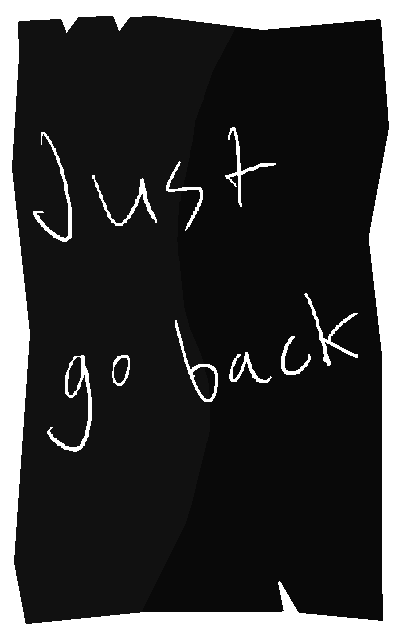 Just
go back